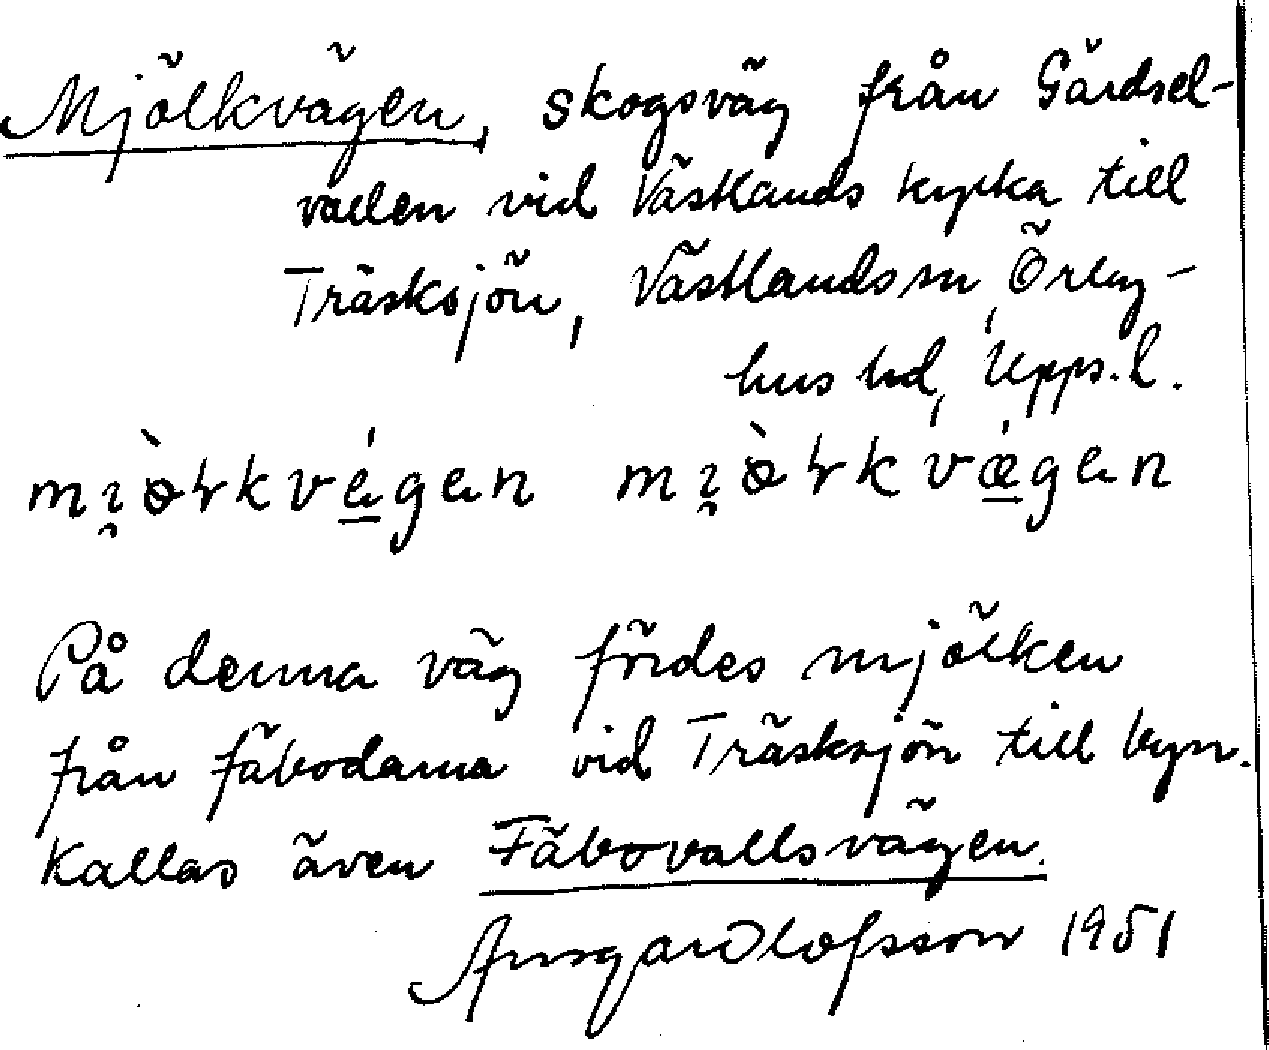 Mjölkvägen, skogsväg från Gärdsel-
vallen vid Västlands kyrka till
Träsksjön, Västlands sn, Örby-
hus hd, Upps. l.
På denna väg fördes mjölken
från fäbodarna vid Träsksjön till byn.
Kallas även Fäbovallsvägen.
Ansgar Olofsson 1951